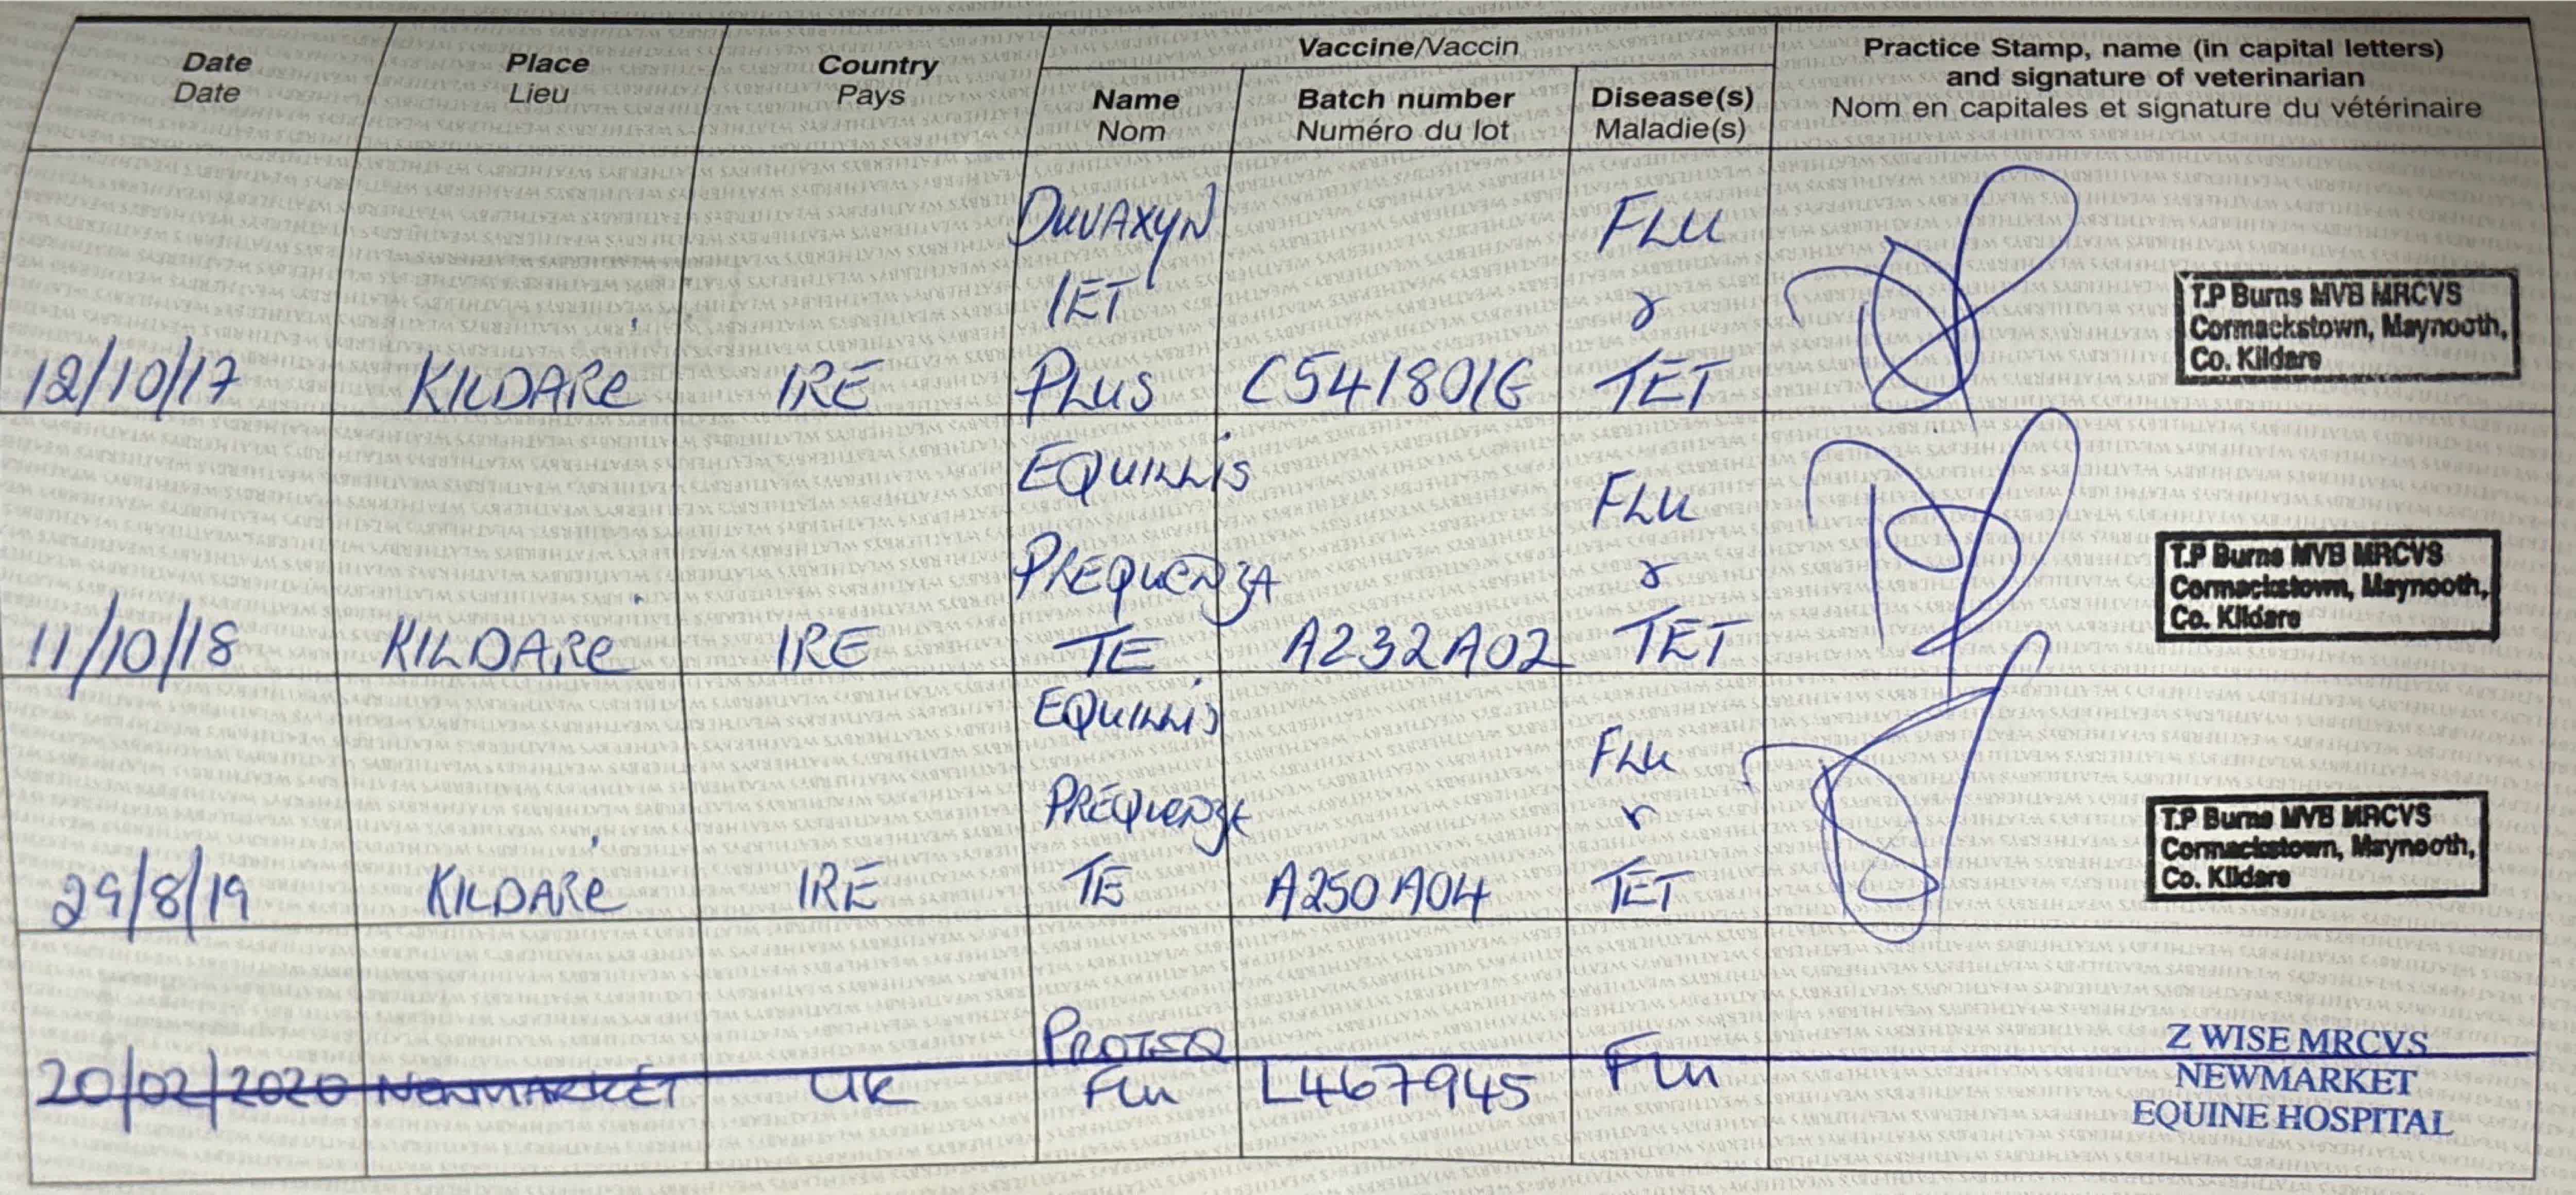 Date
Date
Place
Lieu
Country
Pays
Vaccine/Vaccin
Name
Nom
Batch number
Numéro du lot
Disease(s)
Maladie(s)
Practice Stamp, name (in capital letters)
and signature of veterinarian
Nom en capitales et signature du vétérinaire
12/10/17
KILDARE
IRE
DUVAXYN
IET
PLUS
C541801G
FLU
&
TET
T.P Burns MVB MRCVS
Cormackstown, Maynooth,
Co. Kildare
11/10/18
KILDARE
IRE
EQUILLIS
PREQUENZA
TE
A232A02
FLU
&
TET
T.P Burns MVB MRCVS
Cormackstown, Maynooth,
Co. Kildare
29/8/19
KILDARE
IRE
EQUILLIS
PREQUENZA
TE
A250A04
FLU
&
TET
T.P Burns MVB MRCVS
Cormackstown, Maynooth,
Co. Kildare
20/02/2020
NEWMARKET
UK
PROTEQ
Flu
L467945
Flu
Z WISE MRCVS
NEWMARKET
EQUINE HOSPITAL